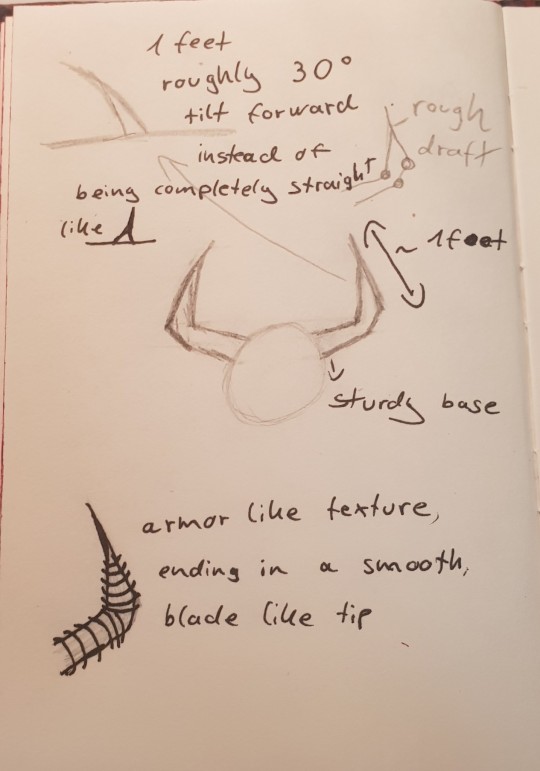 1 feet
roughly 30°
tilt forward
instead of
being completely straight
like
rough
draft
~ 1 feet
sturdy base
armor like texture,
ending in a smooth,
blade like tip